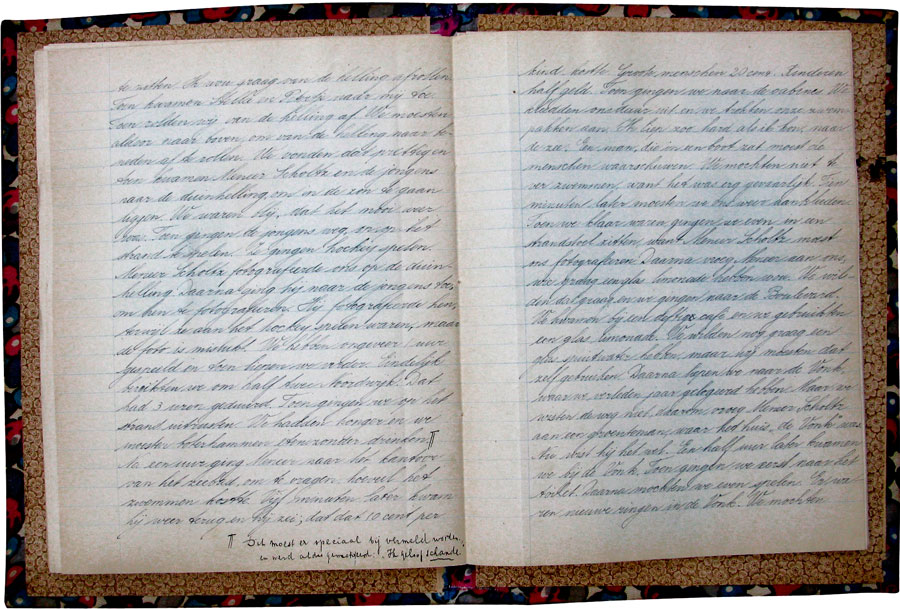 te zitten. Ik wou graag van de helling afrollen
Toen kwamen Hella en Petertje naar mij toe.
Toen rolden wij van de helling af. We moesten
alleen naar boven, om van de helling naar be-
neden af te rollen. We vonden dat prettig en
toen kwamen Meneer Scholtz en de jongens
naar de duinhelling, om in de zon te gaan
liggen. We waren blij, dat het mooi weer
was. Toen gingen de jongens weg, om op het
strand te spelen. Ze gingen hockey spelen.
Meneer Scholtz fotografeerde ons op de duin-
helling. Daarna ging hij naar de jongens toe,
om hen te fotograferen. Hij fotografeerde hen,
terwijl ze aan het hockey spelen waren, maar
de foto is mislukt. We hebben ongeveer 1 uur
gespeeld en toen liepen we verder. Eindelijk
bereikten we om half twee Noordwijk. Dat
had 3 uren geduurd. Toen gingen we op het
strand uitrusten. We hadden honger en we
moesten boterhammen eten zonder drinken. ∏
Na een uur ging Meneer naar het kantoor
van het zeebad, om te vragen, hoeveel het
zwemmen kostte. Vijf minuten later kwam
hij weer terug en hij zei, dat dat 10 cent per
∏ Dit moest er speciaal bij vermeld worden,
en werd aldus gemopperd. Ik geloof schande.
kind kostte. Groote menschen 20 cent. Kinderen
half geld. Toen gingen we naar de cabines. We
kleedden ons daar uit en we trokken onze zwem-
pakken aan. Ik liep zoo hard als ik kon, naar
de zee. Een man, die in een boot zat moest de
menschen waarschuwen. We mochten niet te
ver zwemmen, want het was erg gevaarlijk. Tien
minuten later moesten we ons weer aankleeden.
Toen we klaar waren gingen we even in een
strandstoel zitten, want Meneer Scholtz moest
ons fotograferen. Daarna vroeg Meneer aan ons,
wie graag een glas limonade hebben wou. We wil-
den dat graag en we gingen naar de Boulevard.
We kwamen bij een deftige café en we gebruikten
een glas limonade. We wilden nog graag een
glas spuitwater hebben, maar wij moesten dat
zelf gebruiken. Daarna liepen we naar de Vonk,
waar we verleden jaar gelogeerd hebben. Maar we
wisten de weg niet, daarom vroeg Meneer Scholtz
aan een groenteman, waar het huis "de Vonk" was.
Nu wist hij het wel. Een half uur later kwamen
we bij de Vonk. Toen gingen we eerst naar het
toilet. Daarna mochten we even spelen. Er wa-
ren nieuwe ringen in de Vonk. We mochten